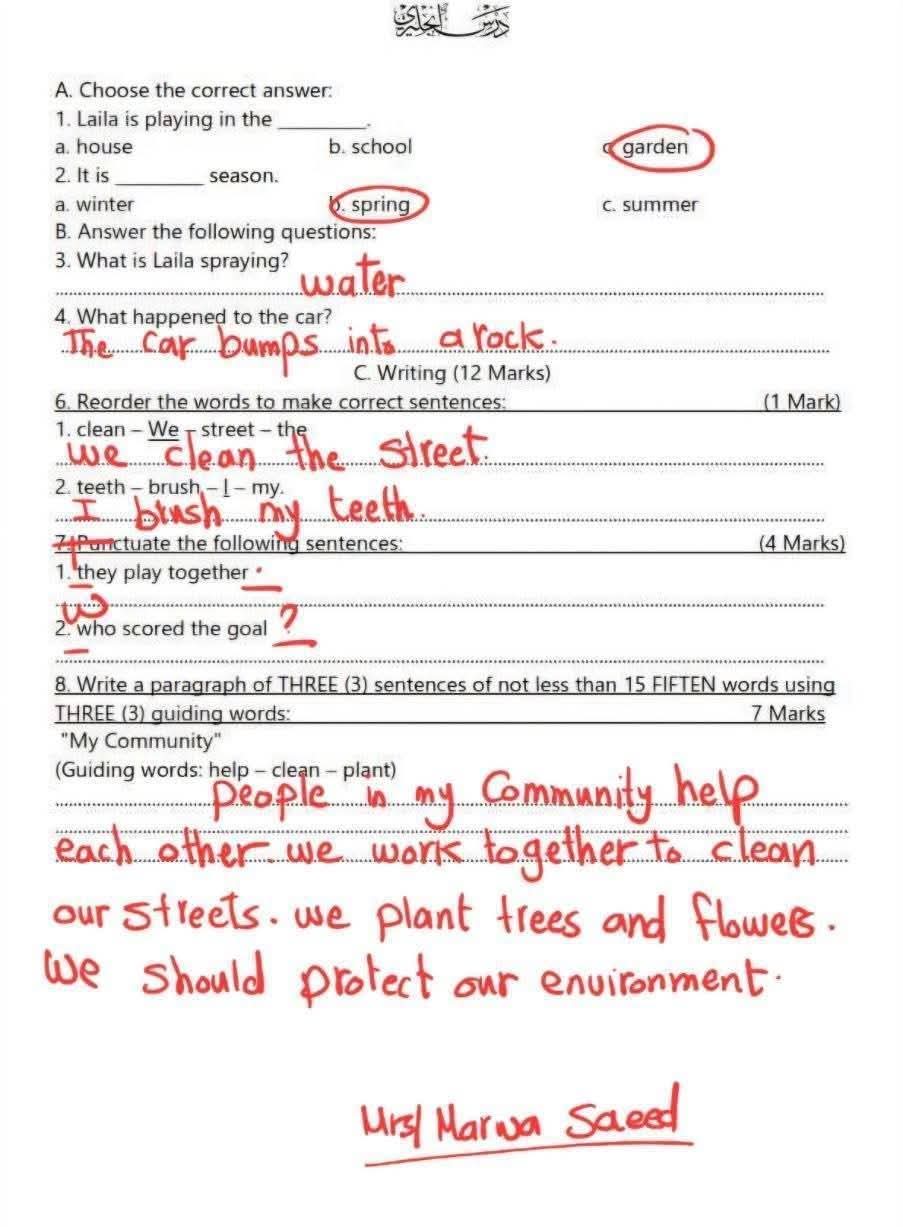 درس إنجليزي
A. Choose the correct answer:
1. Laila is playing in the ________.
a. house b. school c. garden
2. It is ________ season.
a. winter b. spring c. summer
B. Answer the following questions:
3. What is Laila spraying?
water
4. What happened to the car?
The car bumps into a rock.
C. Writing (12 Marks)
6. Reorder the words to make correct sentences: (1 Mark)
1. clean – We – street – the
we clean the street.
2. teeth – brush – I – my.
I brush my teeth.
7. Punctuate the following sentences: (4 Marks)
T
1. they play together .
W
2. who scored the goal ?
8. Write a paragraph of THREE (3) sentences of not less than 15 FIFTEN words using
THREE (3) guiding words: 7 Marks
"My Community"
(Guiding words: help – clean – plant)
people in my Community help
each other. we work together to clean
our streets. we plant trees and flowers.
We should protect our environment.
Mrs/ Marwa Saeed